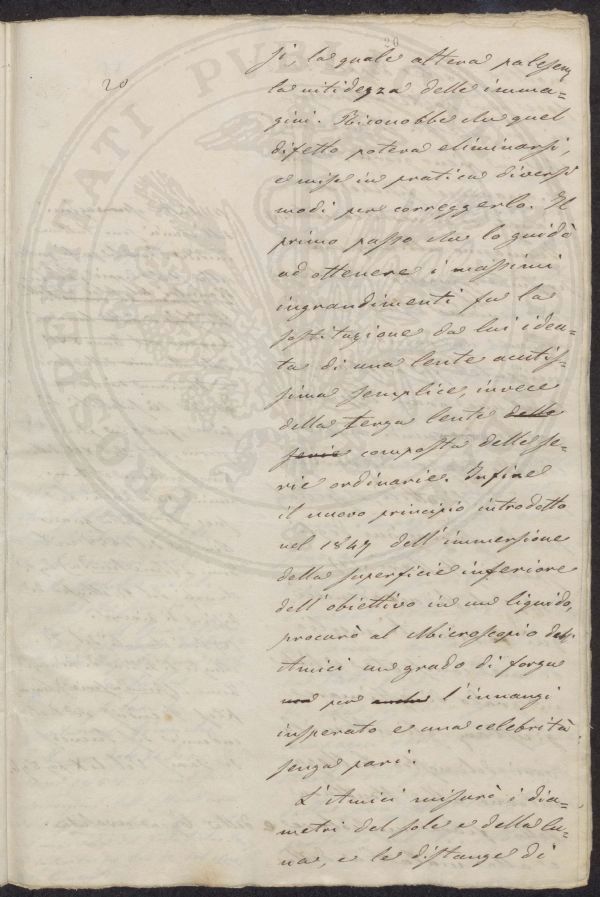 20
20
si, la quale altera palesem
la nitidezza delle imma=
gini. Riconobbe che quel
difetto poteva eliminarsi,
e mise in pratica diversi
modi per correggerlo. Il
primo passo che lo guidò
ad ottenere i massimi
ingrandimenti fu la
sostituzione da lui idea=
ta di una lente acutis=
sima semplice, invece
della terza lente delle
serie composta delle se=
rie ordinarie. Infine
il nuovo principio introdotto
nel 1847 dell'immersione
della superficie inferiore
dell'obiettivo in un liquido,
procurò al Microscopio dell'
Amici un grado di forza
per anche l'innanzi
insperato e una celebrità
senza pari.
L'Amici misurò i dia=
metri del sole e della lu=
na, e le distanze di
PROSPERITATI PUBLIC